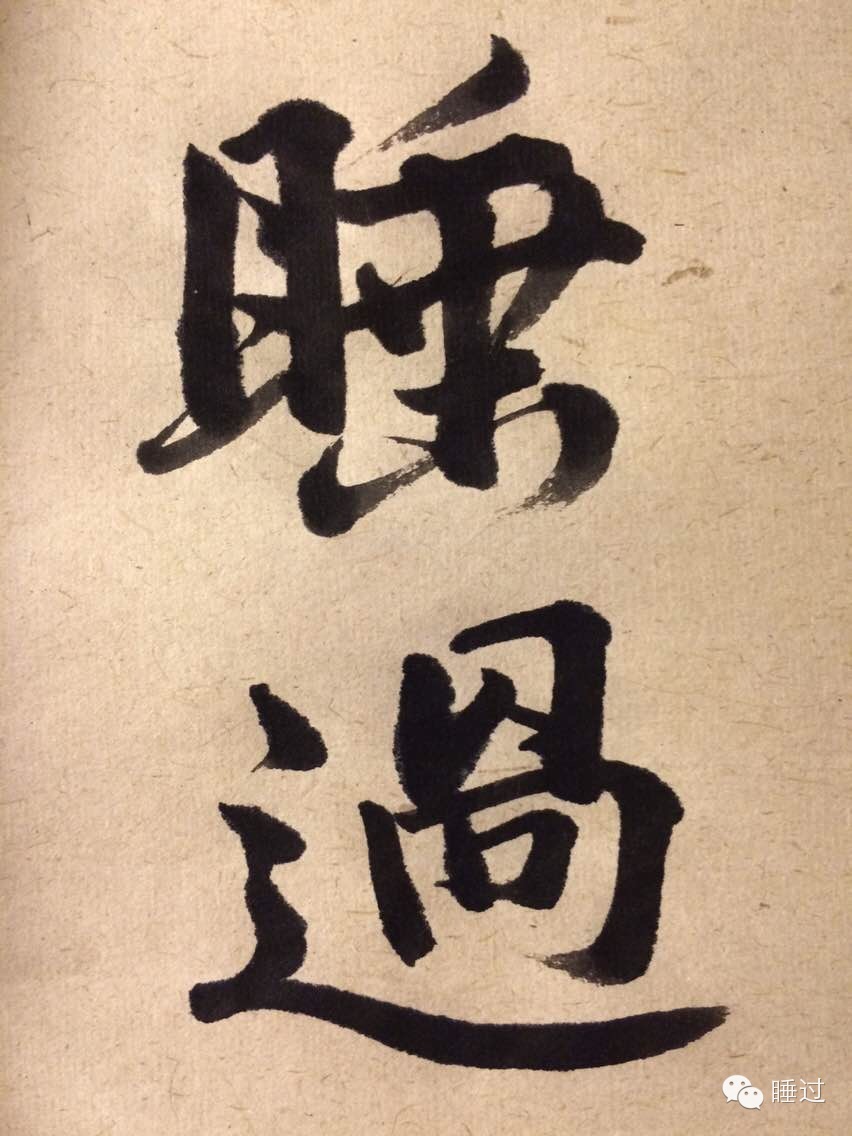 睡
過
睡过